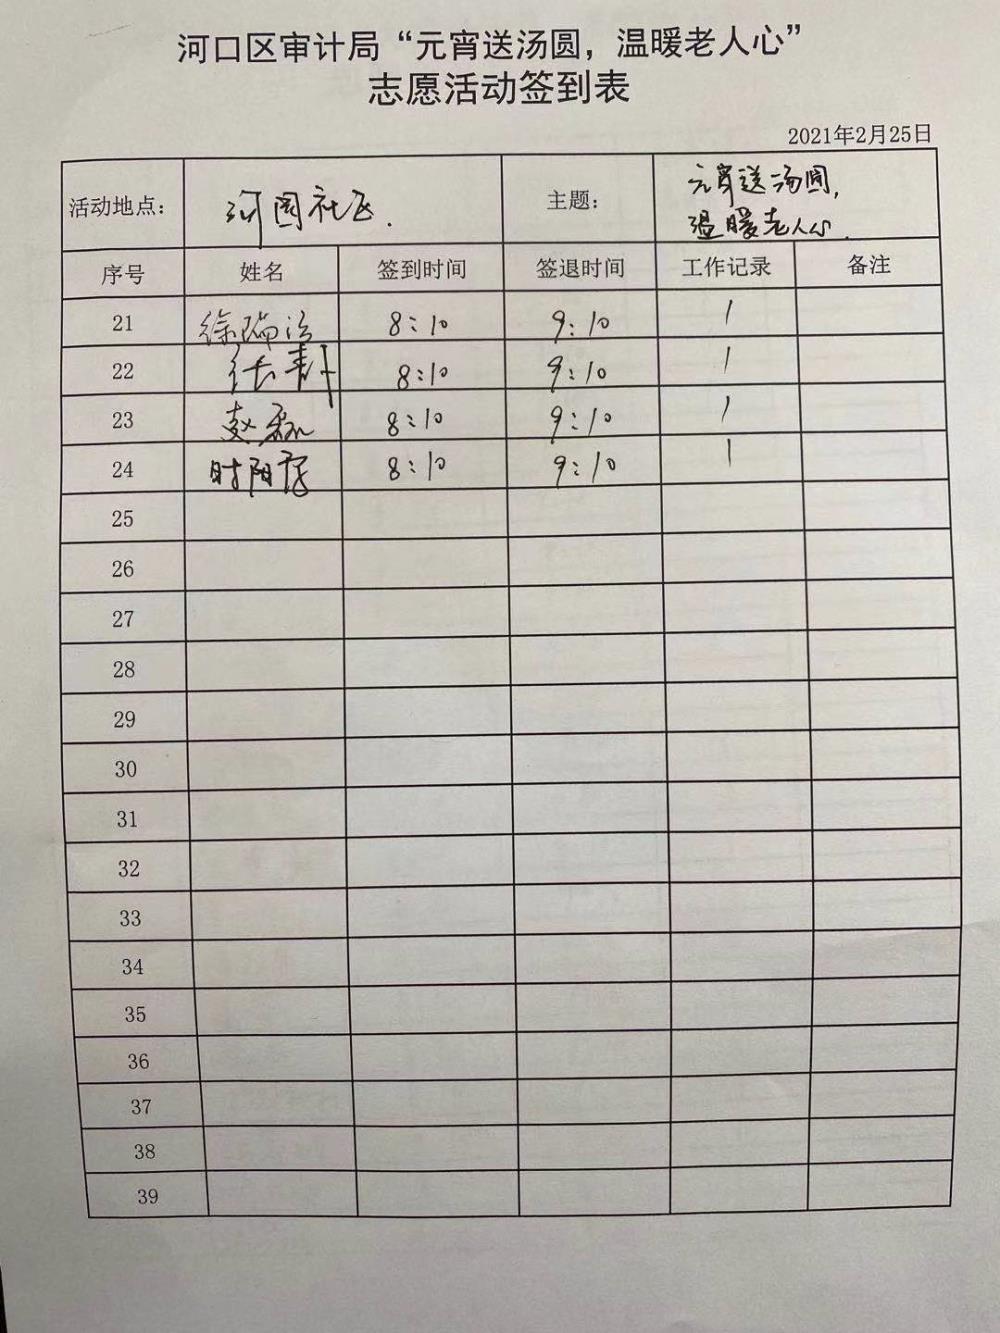 河口区审计局“元宵送汤圆，温暖老人心”
志愿活动签到表
2021年2月25日
活动地点： 河园社区. 主题： 元宵送汤圆,
温暖老人心.
序号 姓名 签到时间 签退时间 工作记录 备注
21 徐瑞 8:10 9:10 1
22 8:10 9:10 1
23 赵磊 8:10 9:10 1
24 时阳 8:10 9:10 1
25
26
27
28
29
30
31
32
33
34
35
36
37
38
39